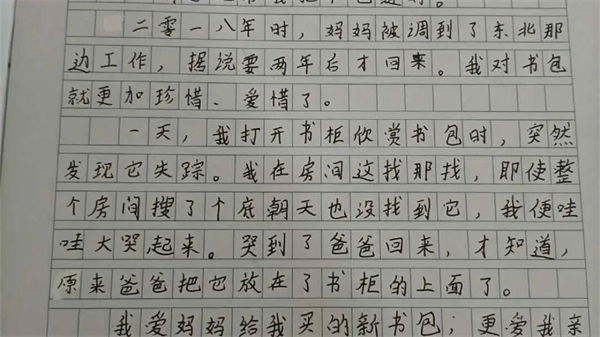 二零一八年时，妈妈被调到了东北那
边工作，据说要两年后才回来。我对书包
就更加珍惜、爱惜了。
一天，我打开书柜欣赏书包时，突然
发现它失踪。我在房间这找那找，即使整
个房间搜了个底朝天也没找到它，我便哇
哇大哭起来。哭到了爸爸回来，才知道，
原来爸爸把它放在了书柜的上面了。
我爱妈妈给我买的新书包；更爱我亲